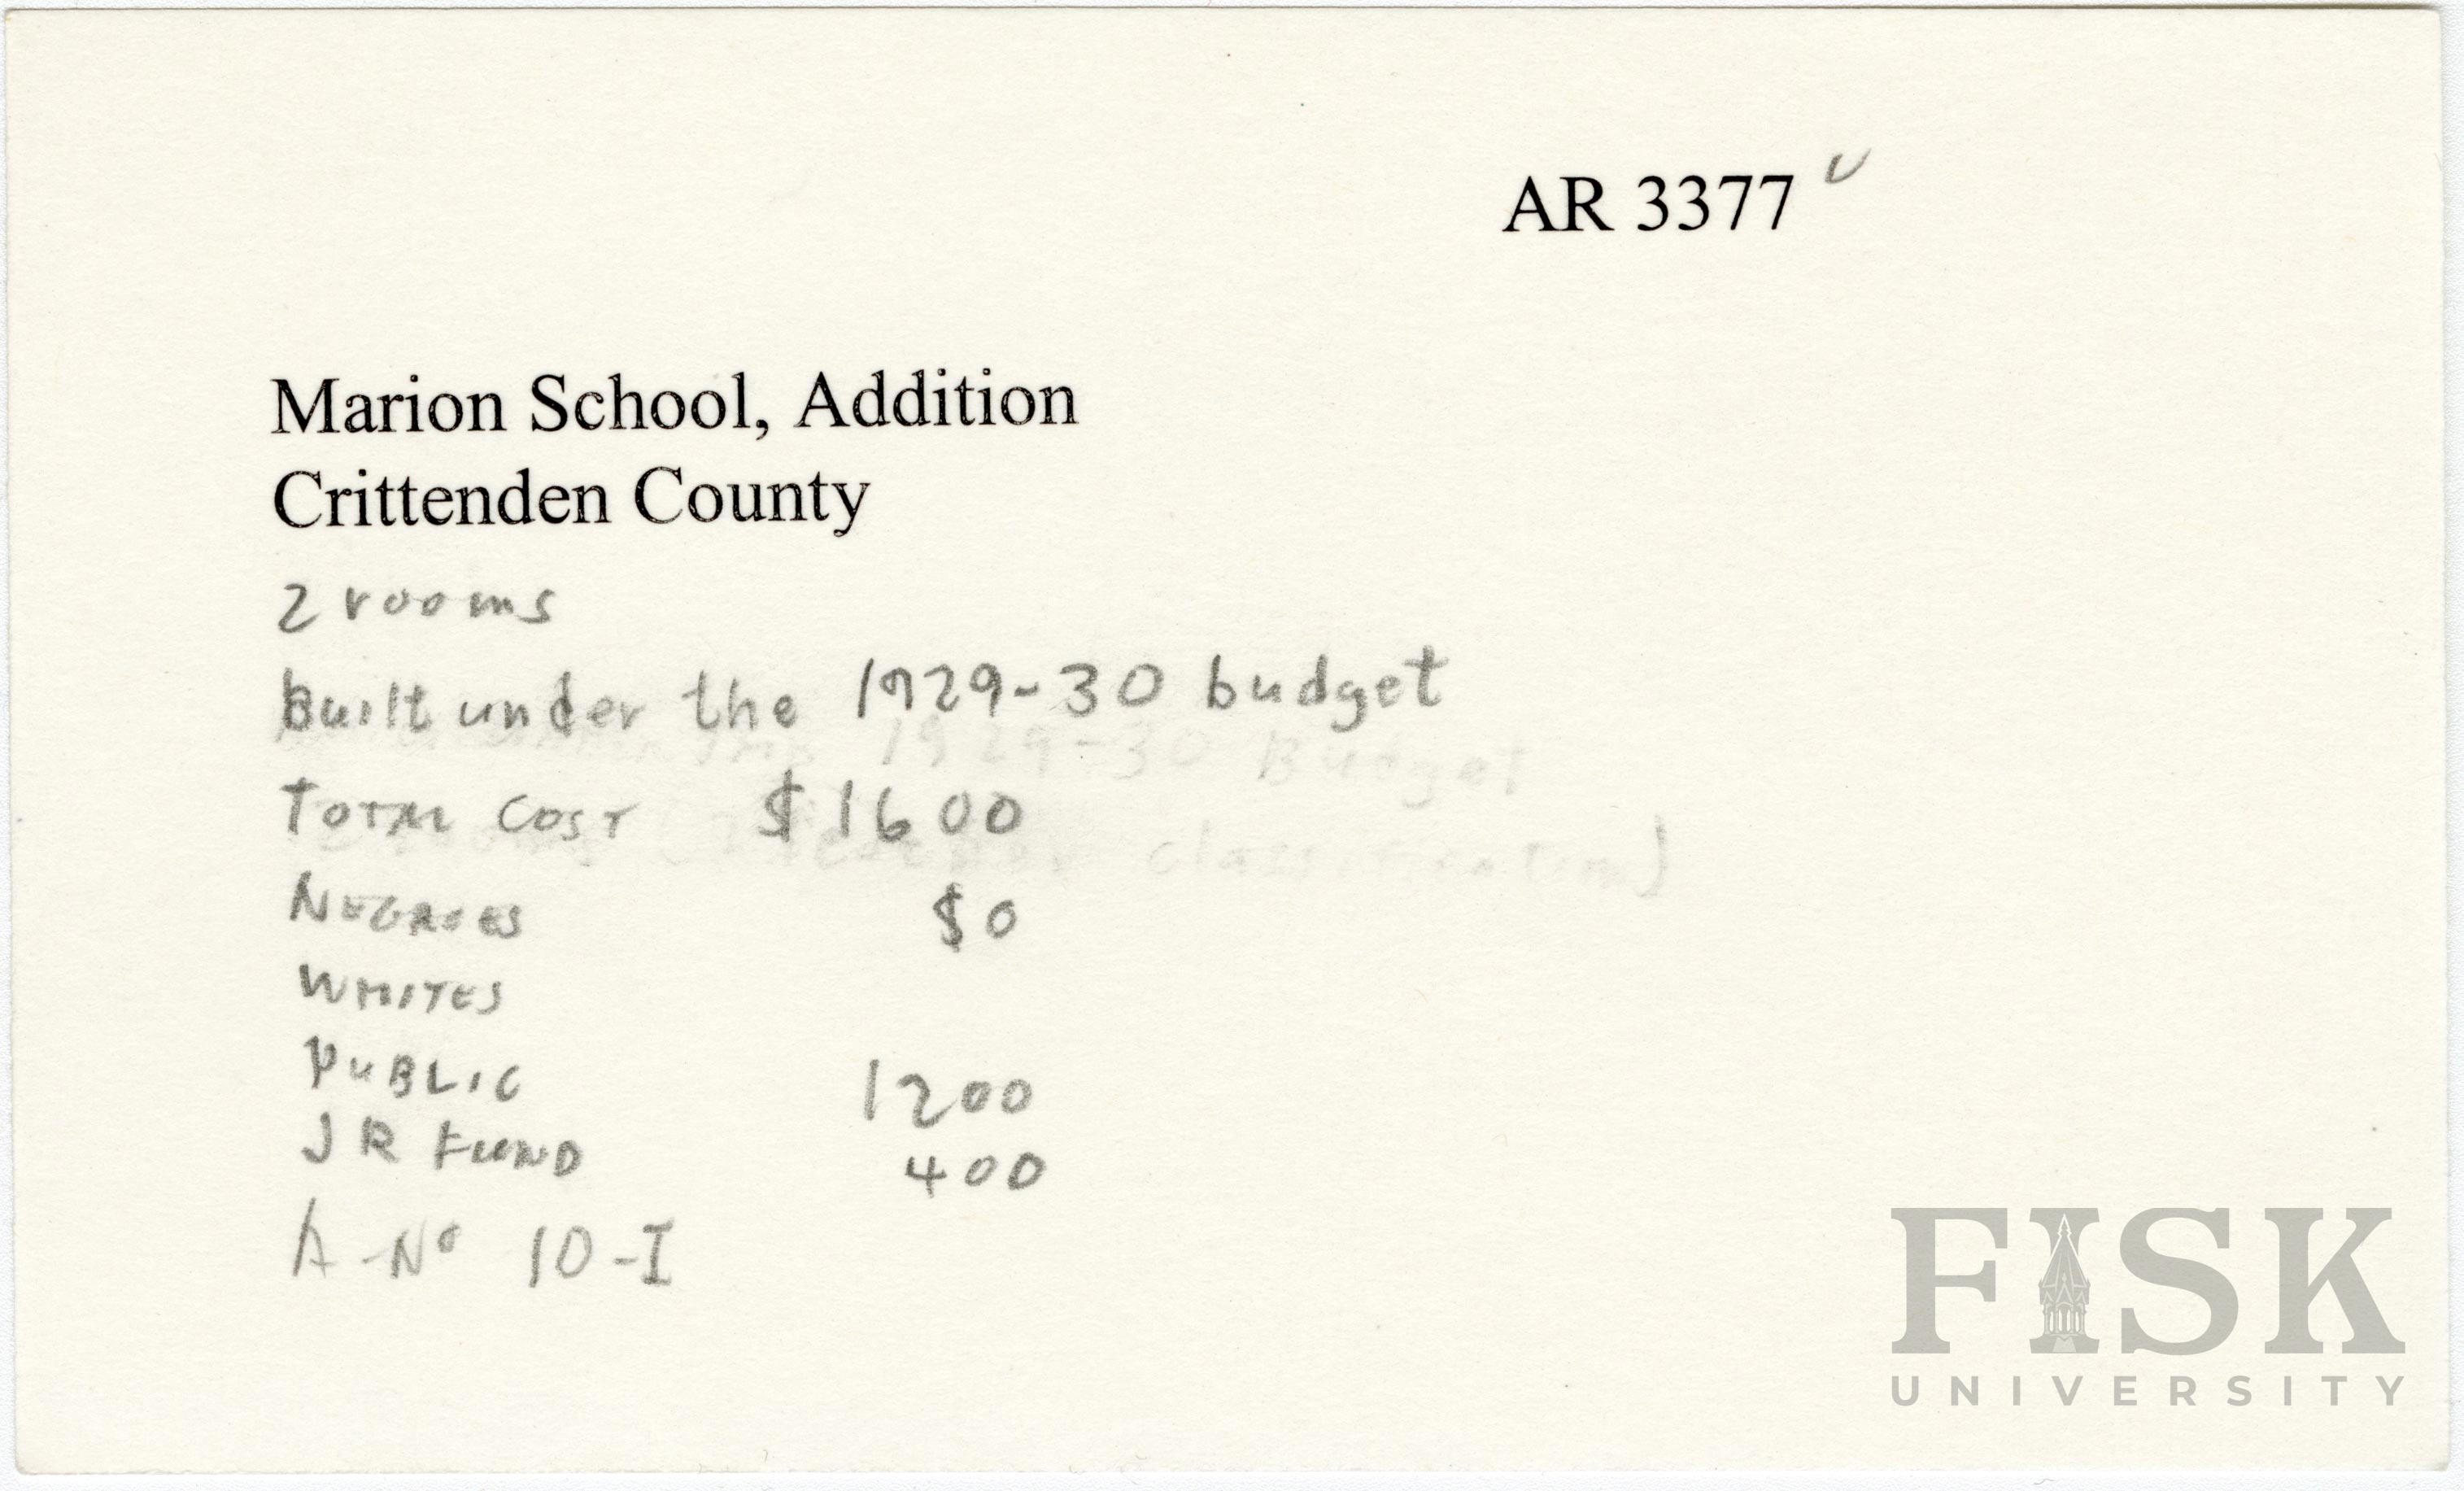 AR 3377
Marion School, Addition
Crittenden County
2 rooms
built under the 1929-30 budget
1929-30 Budget
TOTAL COST $1600
classification)
NEGROES $0
WHITES
PUBLIC 1200
JR FUND 400
A-No 10-I
FISK
UNIVERSITY